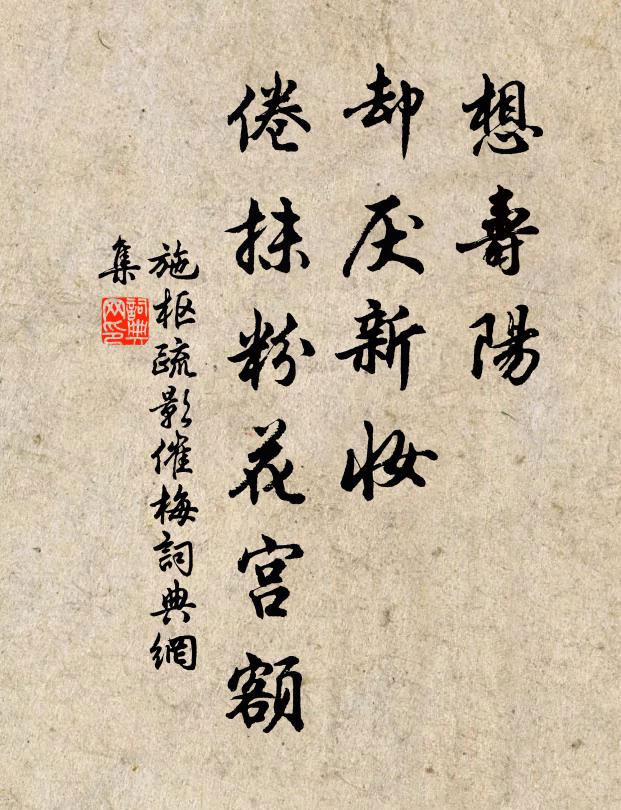 想壽陽
却厌新妆
倦抹粉花宫額
施枢疏影催梅詞典網
集
詞典网印